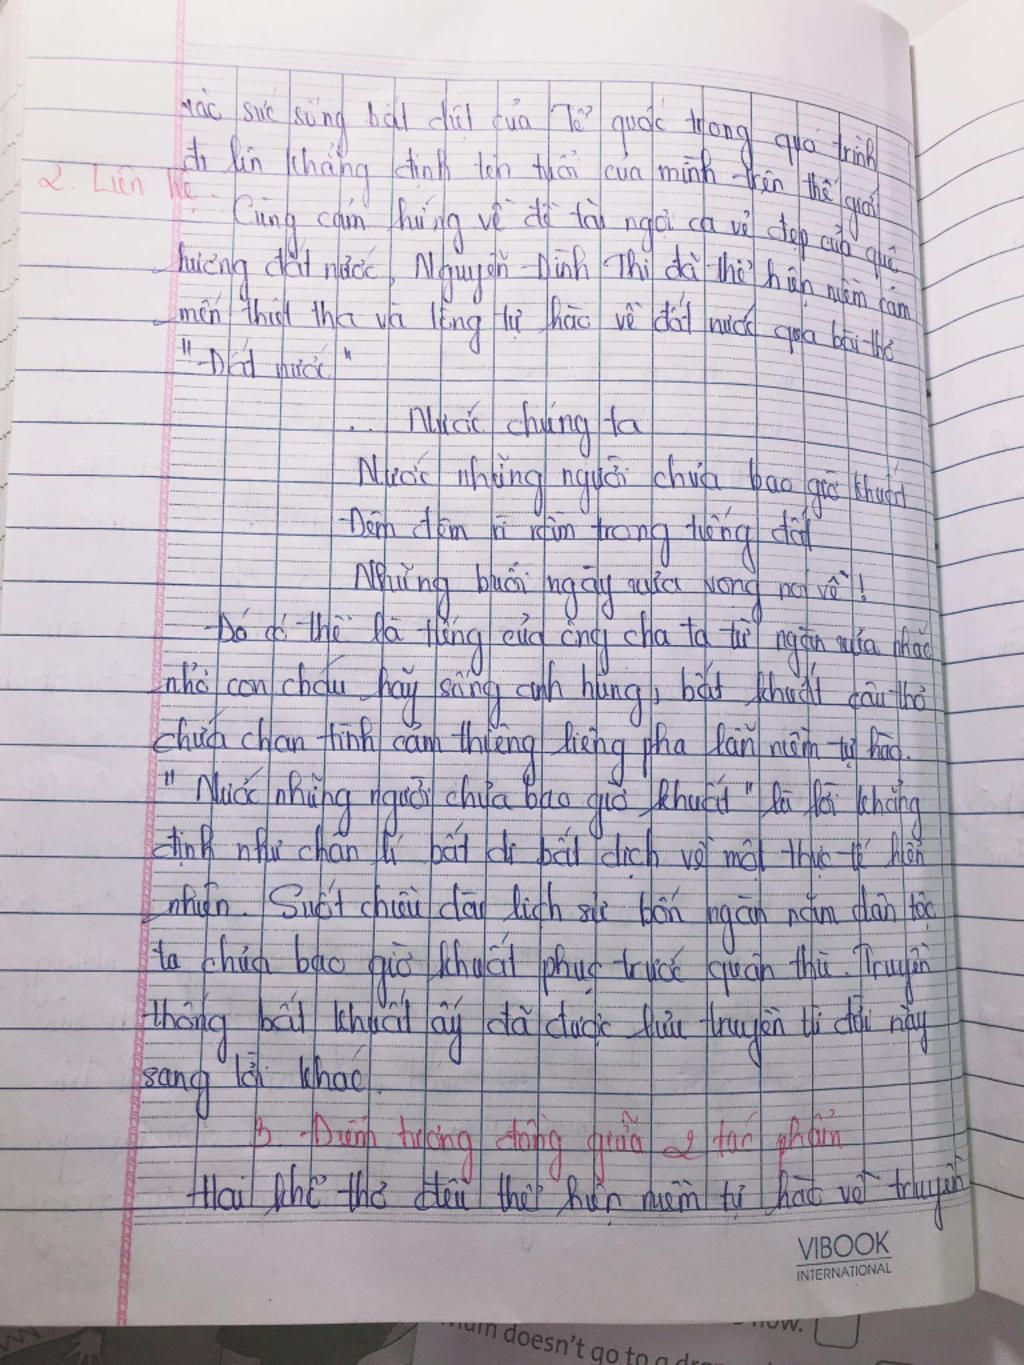 sức sống bất diệt của Tổ quốc trong quá trình
đi lên khẳng định tên tuổi của mình trên thế giới
2. Liên hệ.
Cùng cảm hứng về đề tài ngợi ca vẻ đẹp của quê
hương đất nước, Nguyễn Đình Thi đã thể hiện niềm cảm
mến thiết tha và lòng tự hào về đất nước qua bài thơ
"Đất nước"
... Nước chúng ta
Nước những người chưa bao giờ khuất
Đêm đêm rì rầm trong tiếng đất
Những buổi ngày xưa vọng nói về!
Đó có thể là tiếng của ông cha ta từ ngàn xưa nhắc
nhở con cháu hãy sống anh hùng, bất khuất câu thơ
chứa chan tình cảm thiêng liêng pha lẫn niềm tự hào.
"Nước những người chưa bao giờ khuất" là lời khẳng
định như chân lí bất di bất dịch về một thực tế hiển
nhiên. Suốt chiều dài lịch sử bốn ngàn năm dân tộc
ta chưa bao giờ khuất phục trước quân thù. Truyền
thống bất khuất ấy đã được lưu truyền từ đời này
sang lời khác.
b. Điểm tương đồng giữa 2 tác phẩm
Hai khổ thơ đều thể hiện niềm tự hào về truyền
VIBOOK
INTERNATIONAL
doesn't go to a
now.